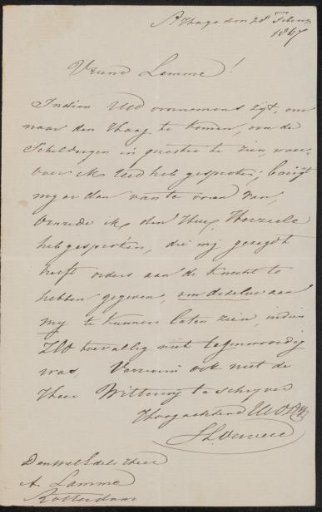 's Hage den 28 Febr
1867
Vriend Lamme!
Indien UEd voornemens zijt, om
naar den Haag te komen, om de
Schilderyen in quaestie te zien, waar-
over ik UEd heb gesproken;
my er dan van te voren van,
ik den Heer
heb gesproken, die my gezegd
heeft orders aan de knecht te
hebben gegeven, om dezelve aan
my te kunnen laten zien, indien
ZEd toevallig niet tegenwoordig
was. Verzuim ook niet de
Heer te schryven
Hoogachtend
S L Verveer
Den WelEdele Heer
A. Lamme
Rotterdam